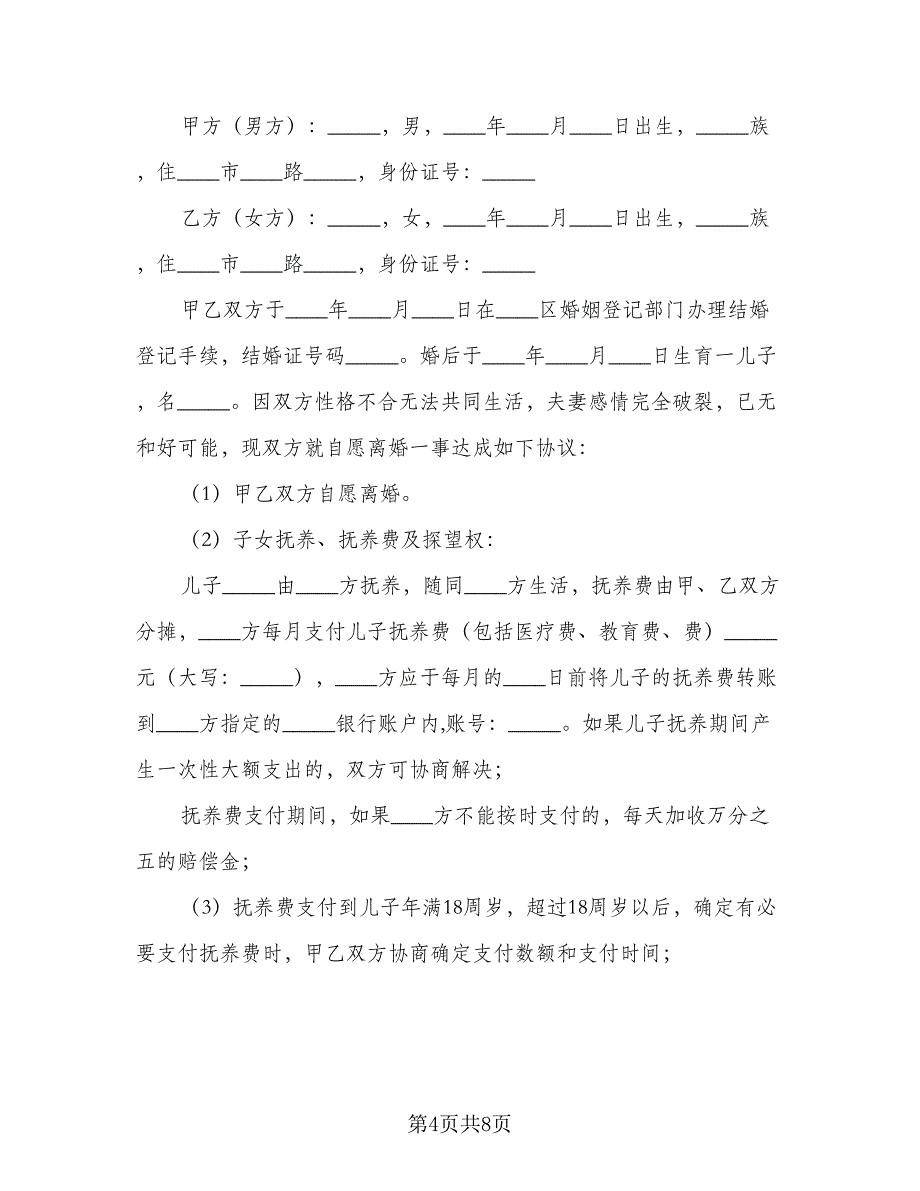 甲方（男方）：_____，男，____年____月____日出生，_____族
，住____市____路_____，身份证号：_____
乙方（女方）：_____，女，____年____月____日出生，_____族
，住____市____路_____，身份证号：_____
甲乙双方于____年____月____日在____区婚姻登记部门办理结婚
登记手续，结婚证号码_____。婚后于____年____月____日生育一儿子
，名_____。因双方性格不合无法共同生活，夫妻感情完全破裂，已无
和好可能，现双方就自愿离婚一事达成如下协议：
（1）甲乙双方自愿离婚。
（2）子女抚养、抚养费及探望权：
儿子_____由____方抚养，随同____方生活，抚养费由甲、乙双方
分摊，____方每月支付儿子抚养费（包括医疗费、教育费、费）_____
元（大写：_____），____方应于每月的____日前将儿子的抚养费转账
到____方指定的_____银行账户内,账号：_____。如果儿子抚养期间产
生一次性大额支出的，双方可协商解决；
抚养费支付期间，如果____方不能按时支付的，每天加收万分之
五的赔偿金；
（3）抚养费支付到儿子年满18周岁，超过18周岁以后，确定有必
要支付抚养费时，甲乙双方协商确定支付数额和支付时间；
第4页共8页